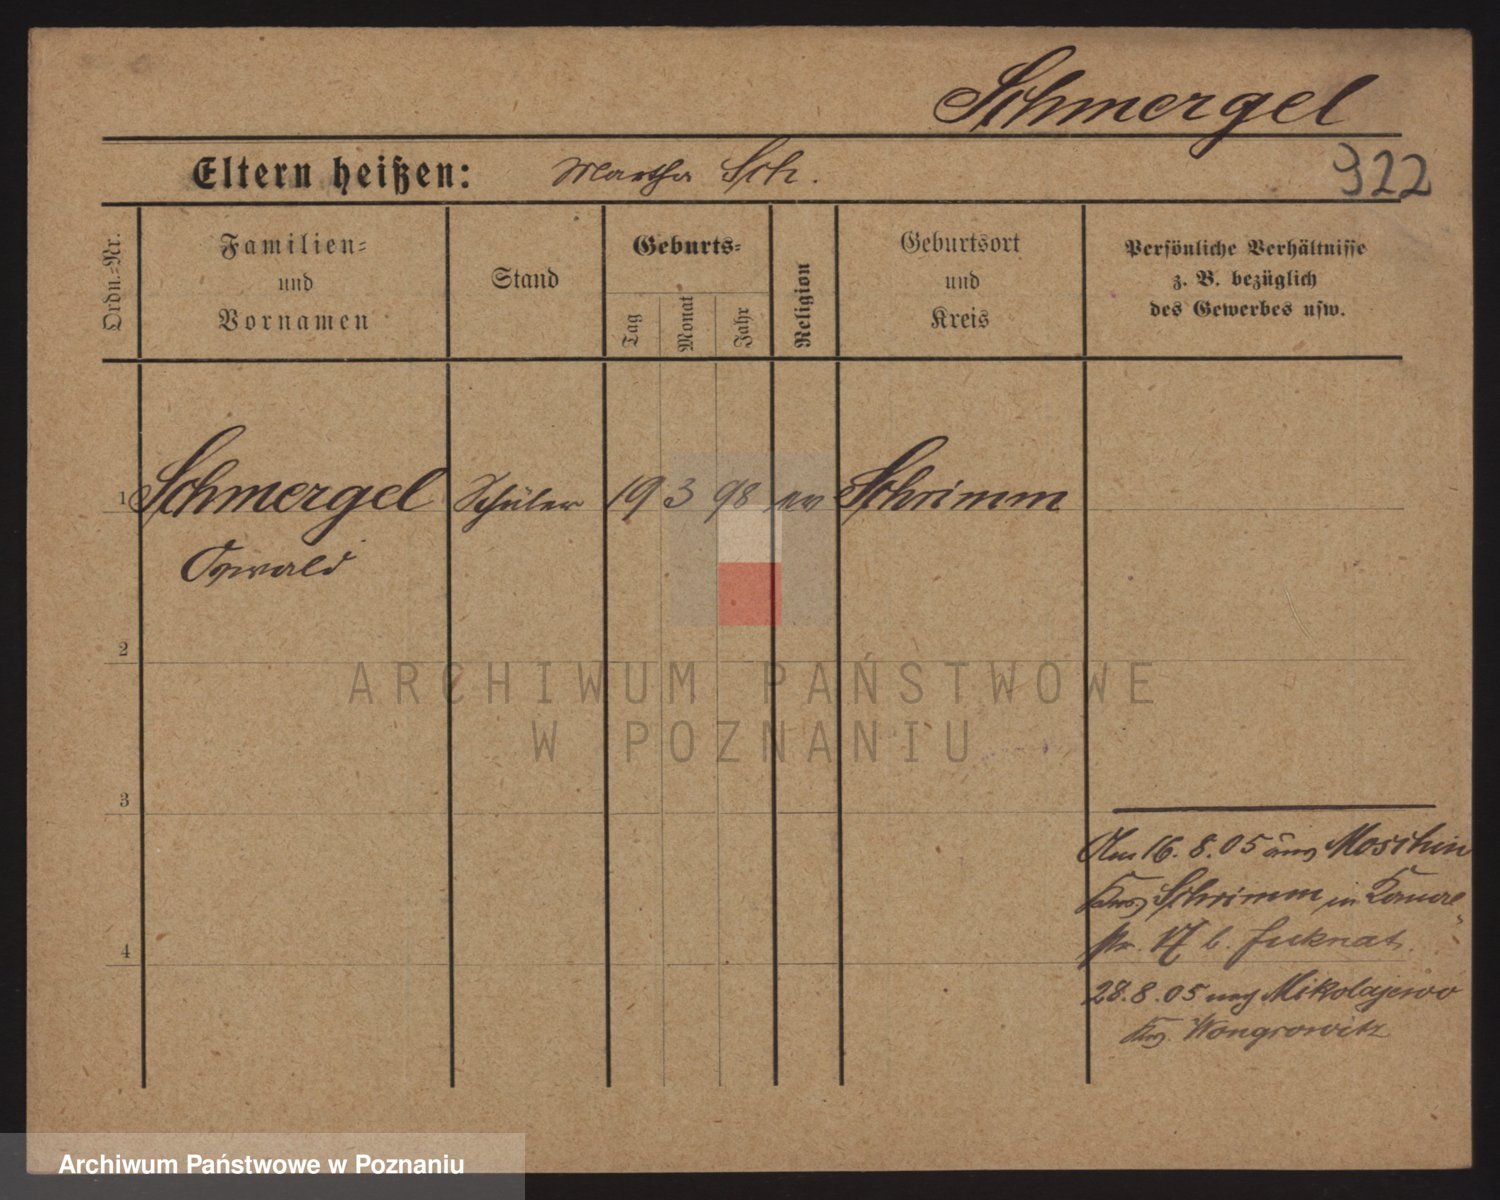 Schmergel
Eltern heißen: Martha Sch.
322
Ordn.-Nr.
Familien-
und
Vornamen
Stand
Geburts-
Tag
Monat
Jahr
Religion
Geburtsort
und
Kreis
Persönliche Verhältnisse
z. B. bezüglich
des Gewerbes usw.
1 Schmergel Schüler 19 3 98 ev Schrimm
Oswald
2
3
4
Am 16. 8. 05 aus Moschin
Krs Schrimm in
str. 17 b.
28. 8. 05 nach Mikolajewo
Krs. Wongrowitz
ARCHIWUM PAŃSTWOWE
W POZNANIU
Archiwum Państwowe w Poznaniu